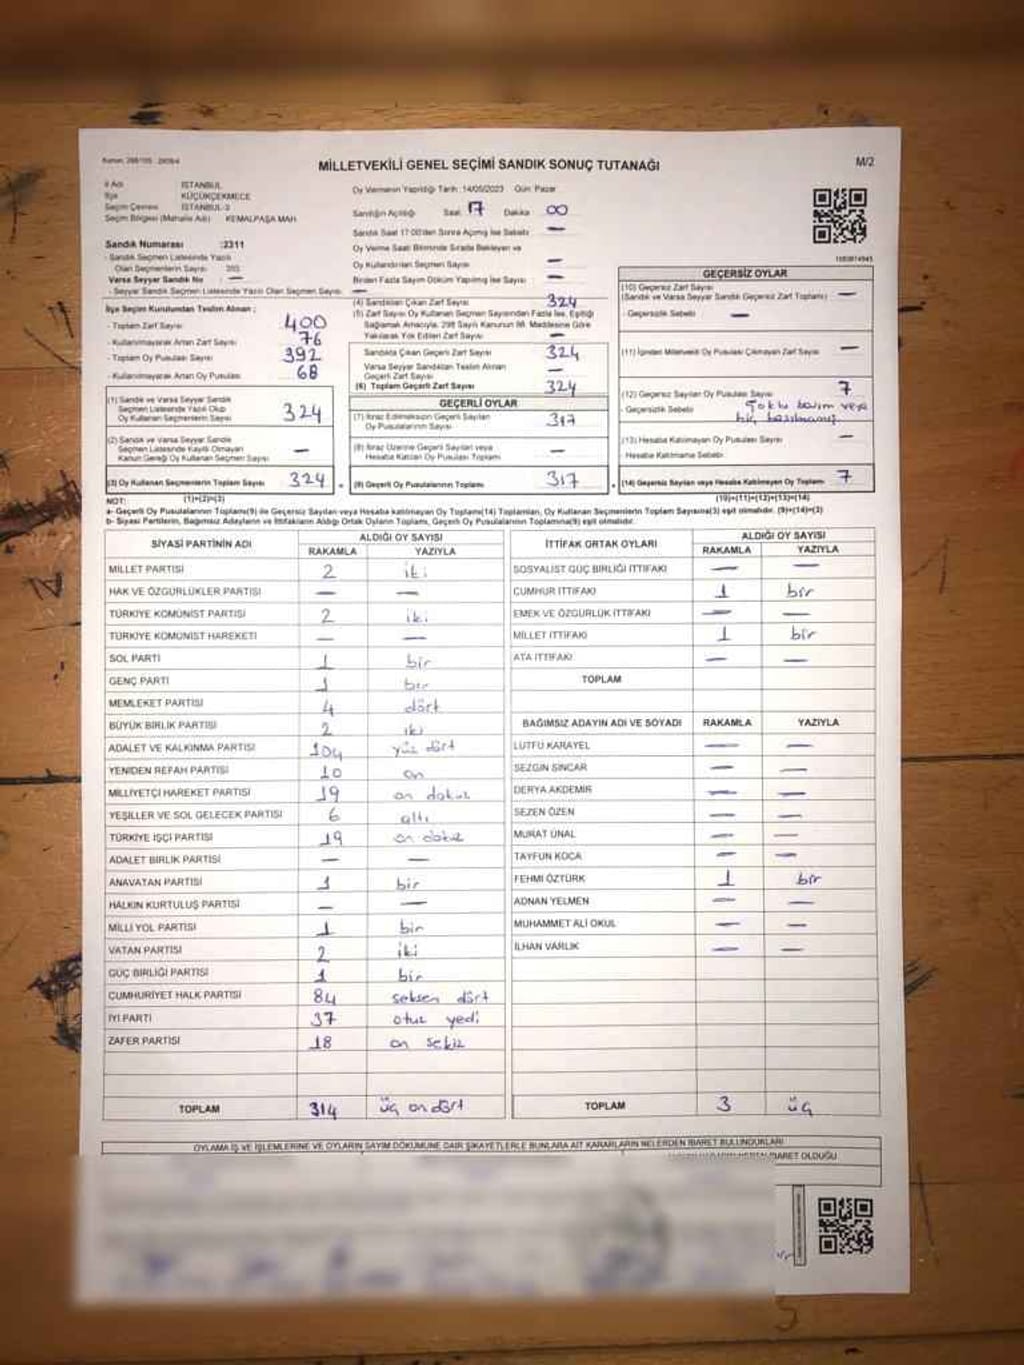 MİLLETVEKİLİ GENEL SEÇİMİ SANDIK SONUÇ TUTANAĞI
M/2
İl Adı İSTANBUL
İlçe KÜÇÜKÇEKMECE
Seçim Çevresi İSTANBUL-3
Seçim Bölgesi (Mahalle Adı) KEMALPAŞA MAH.
Sandık Numarası :2311
- Sandık Seçmen Listesinde Yazılı
Olan Seçmenlerin Sayısı
Varsa Seyyar Sandık No : —
- Seyyar Sandık Seçmen Listesinde Yazılı Olan Seçmen Sayısı: —
Oy Vermenin Yapıldığı Tarih :14/05/2023 Gün: Pazar
Sandığın Açıldığı Saat 17 Dakika 00
Sandık Saat 17:00'den Sonra Açılmış İse Sebebi —
Oy Verme Saati Bitiminde Sırada Bekleyen ve
Oy Kullandırılan Seçmen Sayısı —
Birden Fazla Sayım Döküm Yapılmış İse Sayısı —
İlçe Seçim Kurulundan Teslim Alınan ;
- Toplam Zarf Sayısı 400
- Kullanılmayarak Artan Zarf Sayısı 76
- Toplam Oy Pusulası Sayısı 392
- Kullanılmayarak Artan Oy Pusulası 68
(1) Sandık ve Varsa Seyyar Sandık
Seçmen Listesinde Yazılı Olup
Oy Kullanan Seçmenlerin Sayısı 324
(2) Sandık ve Varsa Seyyar Sandık
Seçmen Listesinde Kayıtlı Olmayan
Kanun Gereği Oy Kullanan Seçmen Sayısı —
(3) Oy Kullanan Seçmenlerin Toplam Sayısı 324
(4) Sandıktan Çıkan Zarf Sayısı 324
(5) Zarf Sayısı Oy Kullanan Seçmen Sayısından Fazla İse, Eşitliği
Sağlamak Amacıyla, 298 Sayılı Kanunun 98. Maddesine Göre
Yakılarak Yok Edilen Zarf Sayısı —
Sandıkta Çıkan Geçerli Zarf Sayısı 324
Varsa Seyyar Sandıktan Teslim Alınan
Geçerli Zarf Sayısı —
(6) Toplam Geçerli Zarf Sayısı 324
GEÇERLİ OYLAR
(7) İtiraz Edilmeksizin Geçerli Sayılan
Oy Pusulalarının Sayısı 317
(8) İtiraz Üzerine Geçerli Sayılan veya
Hesaba Katılan Oy Pusulası Toplamı —
(9) Geçerli Oy Pusulalarının Toplamı 317
GEÇERSİZ OYLAR
(10) Geçersiz Zarf Sayısı
(Sandık ve Varsa Seyyar Sandık Geçersiz Zarf Toplamı) —
- Geçersizlik Sebebi —
(11) İçinden Milletvekili Oy Pusulası Çıkmayan Zarf Sayısı —
(12) Geçersiz Sayılan Oy Pusulası Sayısı 7
- Geçersizlik Sebebi Çoklu basım veya
hiç basılmamış
(13) Hesaba Katılmayan Oy Pusulası Sayısı —
Hesaba Katılmama Sebebi
(14) Geçersiz Sayılan veya Hesaba Katılmayan Oy Toplamı 7
NOT: (1)+(2)=(3) (10)+(11)+(12)+(13)=(14)
a- Geçerli Oy Pusulalarının Toplamı(9) ile Geçersiz Sayılan veya Hesaba katılmayan Oy Toplamı(14) Toplamları, Oy Kullanan Seçmenlerin Toplam Sayısına(3) eşit olmalıdır. (9)+(14)=(3)
b- Siyasi Partilerin, Bağımsız Adayların ve İttifakların Aldığı Ortak Oyların Toplamı, Geçerli Oy Pusulalarının Toplamına(9) eşit olmalıdır.
SİYASİ PARTİNİN ADI ALDIĞI OY SAYISI
RAKAMLA YAZIYLA
MİLLET PARTİSİ 2 iki
HAK VE ÖZGÜRLÜKLER PARTİSİ — —
TÜRKİYE KOMÜNİST PARTİSİ 2 iki
TÜRKİYE KOMÜNİST HAREKETİ — —
SOL PARTİ 1 bir
GENÇ PARTİ 1 bir
MEMLEKET PARTİSİ 4 dört
BÜYÜK BİRLİK PARTİSİ 2 iki
ADALET VE KALKINMA PARTİSİ 104 yüz dört
YENİDEN REFAH PARTİSİ 10 on
MİLLİYETÇİ HAREKET PARTİSİ 19 on dokuz
YEŞİLLER VE SOL GELECEK PARTİSİ 6 altı
TÜRKİYE İŞÇİ PARTİSİ 19 on dokuz
ADALET BİRLİK PARTİSİ — —
ANAVATAN PARTİSİ 1 bir
HALKIN KURTULUŞ PARTİSİ — —
MİLLİ YOL PARTİSİ 1 bir
VATAN PARTİSİ 2 iki
GÜÇ BİRLİĞİ PARTİSİ 1 bir
CUMHURİYET HALK PARTİSİ 84 seksen dört
İYİ PARTİ 37 otuz yedi
ZAFER PARTİSİ 18 on sekiz
TOPLAM 314 üç on dört
İTTİFAK ORTAK OYLARI ALDIĞI OY SAYISI
RAKAMLA YAZIYLA
SOSYALİST GÜÇ BİRLİĞİ İTTİFAKI — —
CUMHUR İTTİFAKI 1 bir
EMEK VE ÖZGÜRLÜK İTTİFAKI — —
MİLLET İTTİFAKI 1 bir
ATA İTTİFAKI — —
TOPLAM
BAĞIMSIZ ADAYIN ADI VE SOYADI RAKAMLA YAZIYLA
LÜTFÜ KARAYEL — —
SEZGİN SİNCAR — —
DERYA AKDEMİR — —
SEZEN ÖZEN — —
MURAT ÜNAL — —
TAYFUN KOCA — —
FEHMİ ÖZTÜRK 1 bir
ADNAN YELMEN — —
MUHAMMET ALİ OKUL — —
İLHAN VARLIK — —
TOPLAM 3 üç
OYLAMA İŞ VE İŞLEMLERİNE VE OYLARIN SAYIM DÖKÜMÜNE DAİR ŞİKAYETLERLE BUNLARA AİT KARARLARIN NELERDEN İBARET BULUNDUKLARI
İBARET OLDUĞU